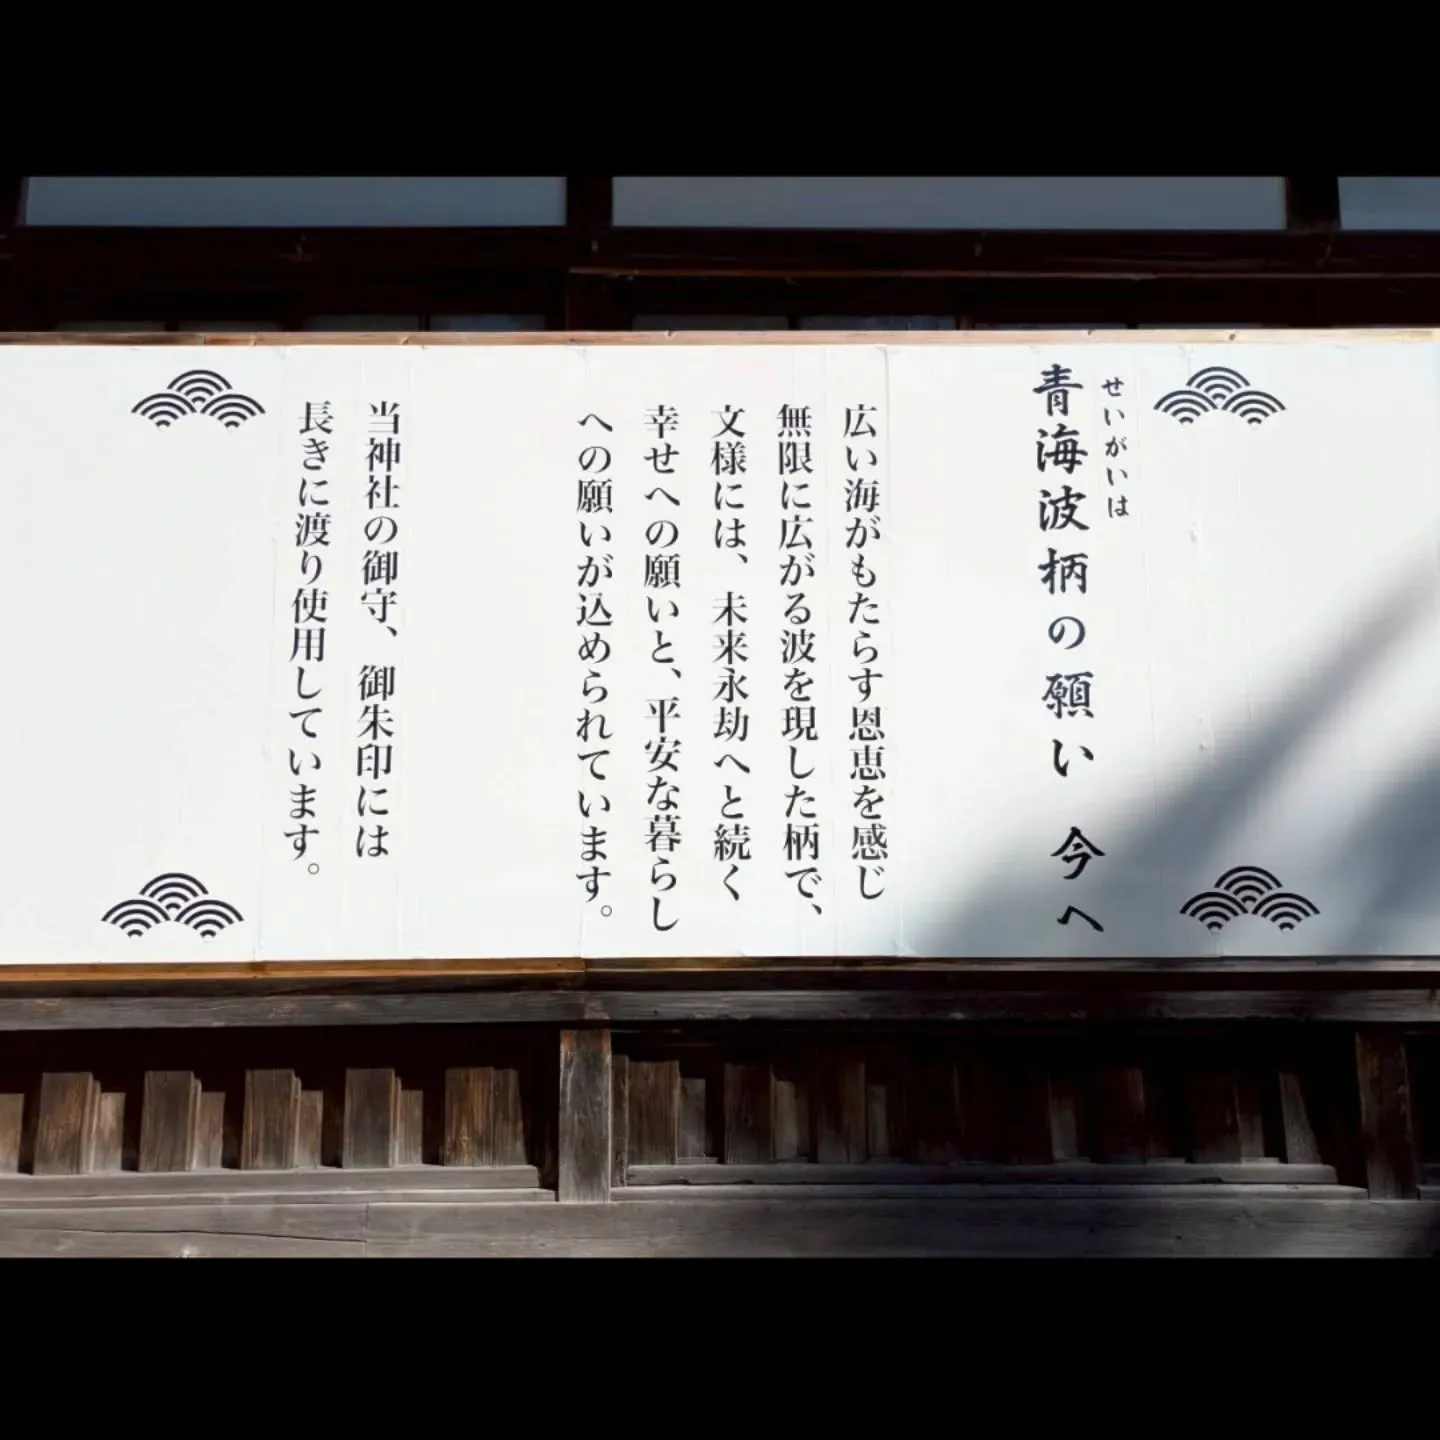 青海波柄の願い 今へ
せいがいは
広い海がもたらす恩恵を感じ
無限に広がる波を現した柄で、
文様には、未来永劫へと続く
幸せへの願いと、平安な暮らし
への願いが込められています。
当神社の御守、御朱印には
長きに渡り使用しています。